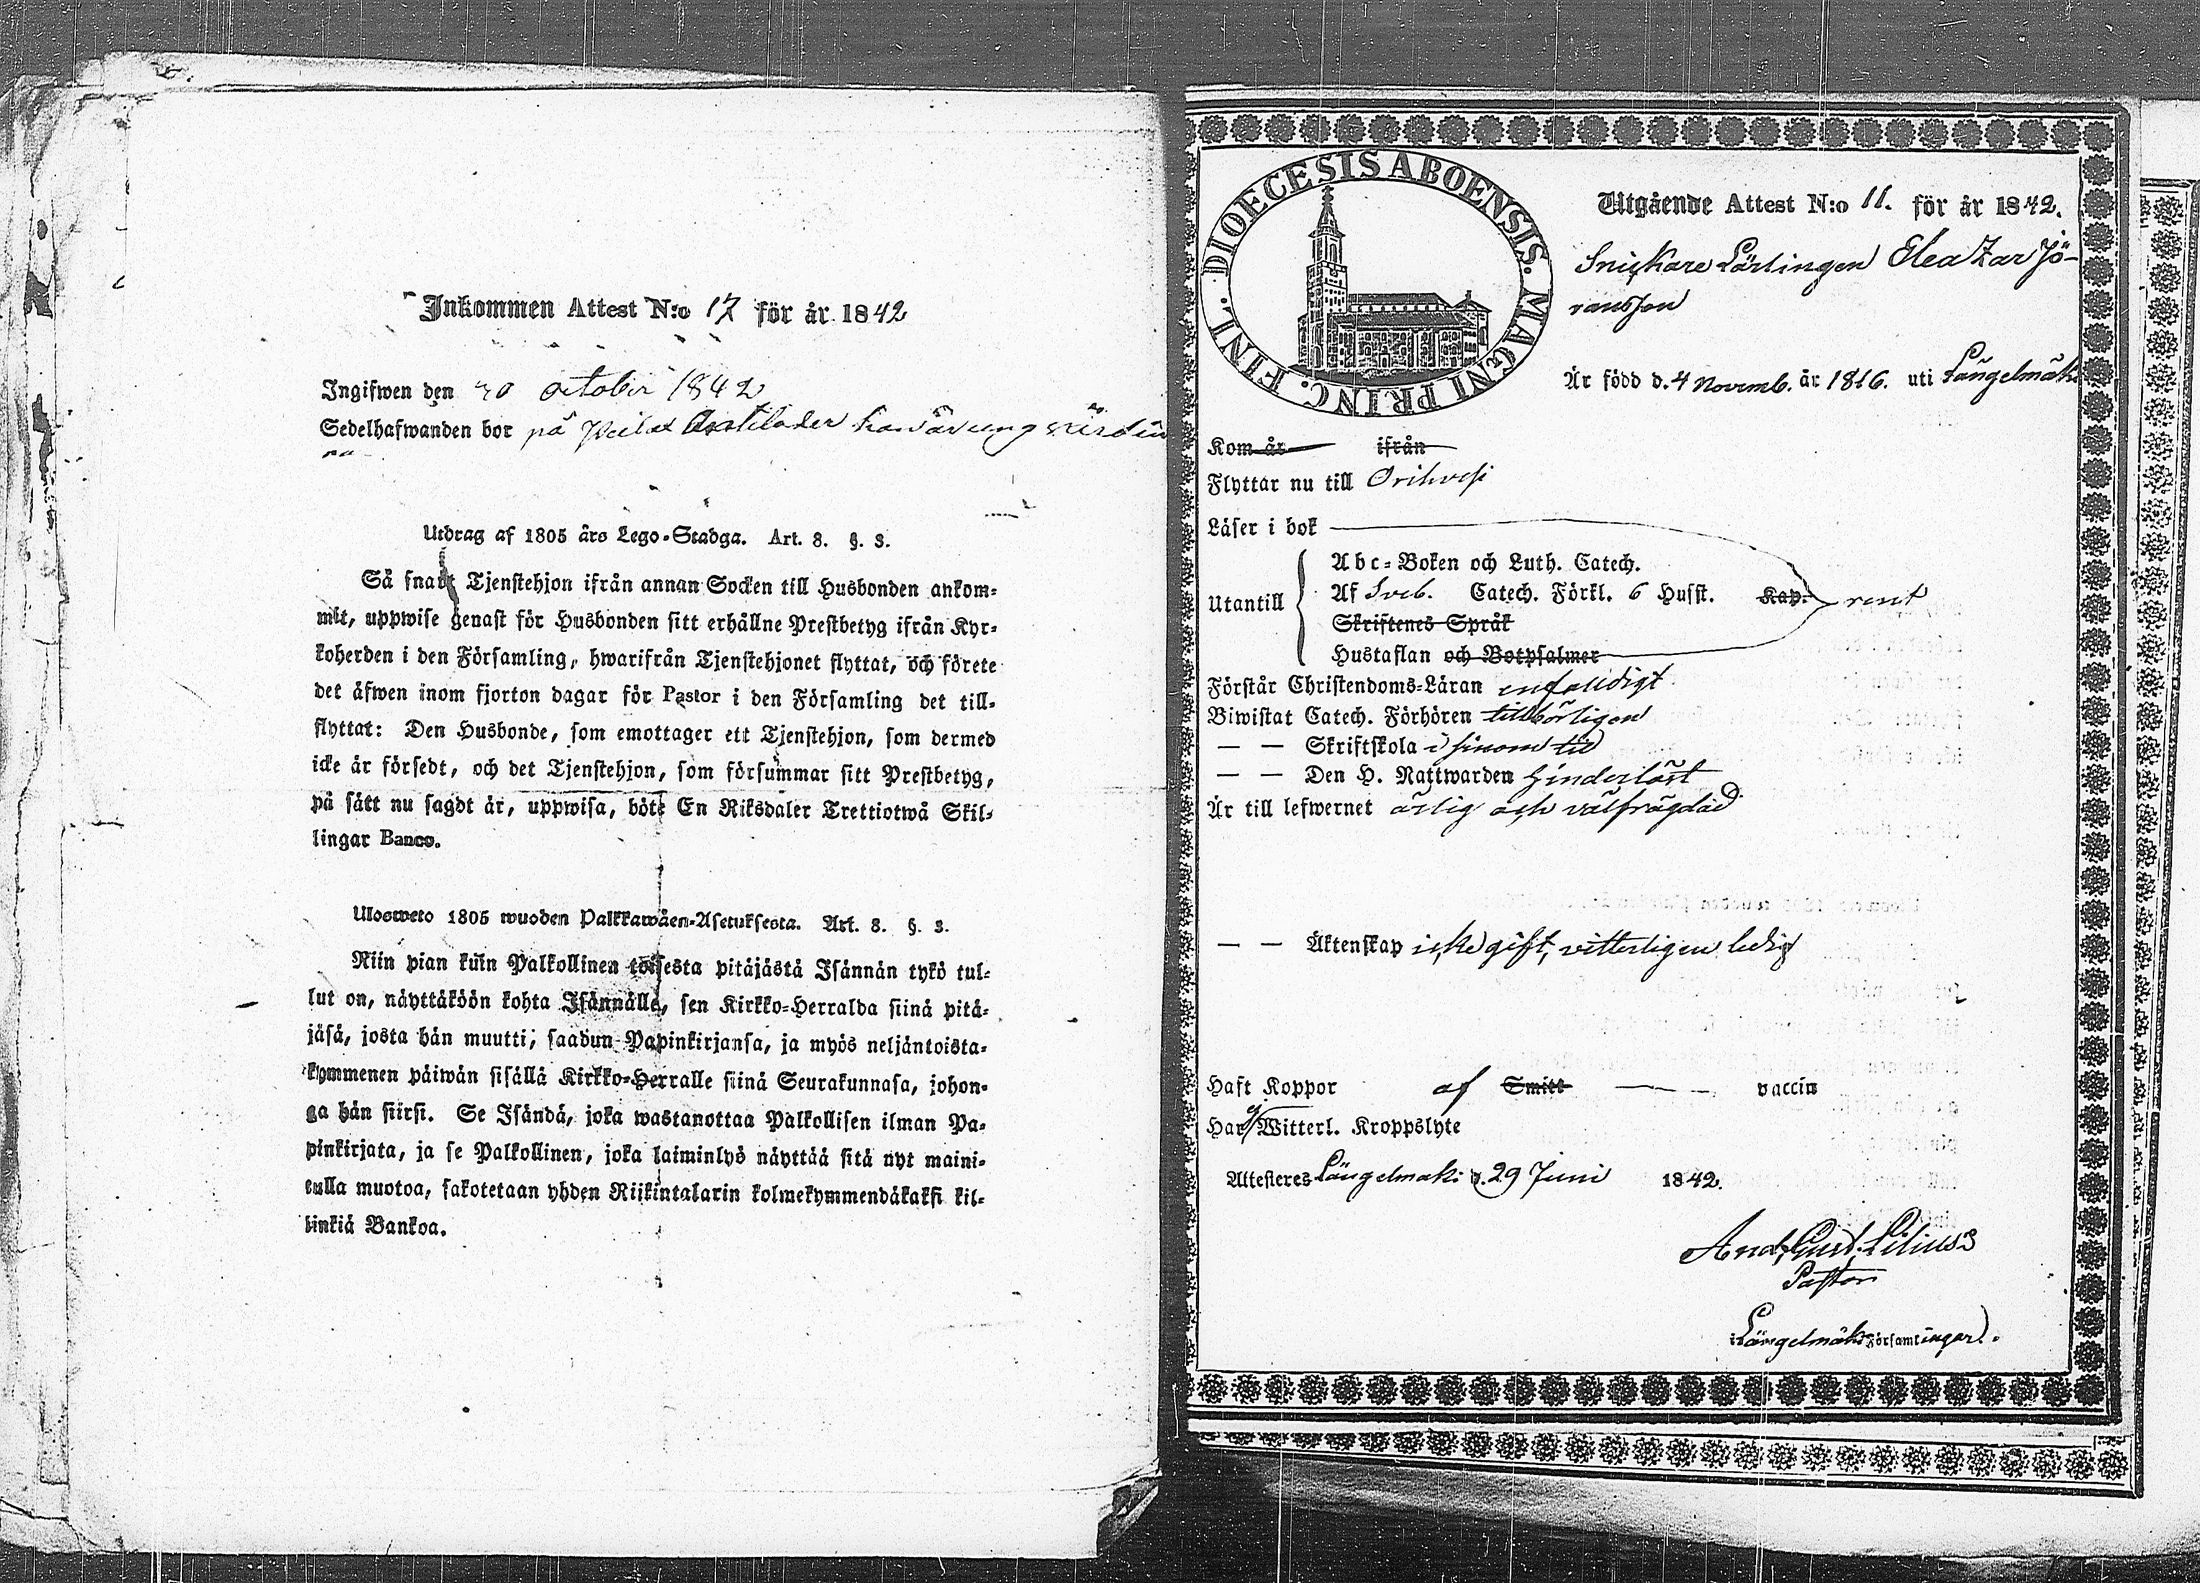 Inkommen Attest N:o 17 för år 1842
Ingifwen den 30 october 1842
Sedelhafwanden bor på
Utdrag af 1805 års Lego-Stadga. Art. 8. §. 3.
Så snart Tjenstehjon ifrån annan Socken till Husbonden ankom-
mit, uppwise genast för Husbonden sitt erhållne Prestbetyg ifrån Kyr-
koherden i den Församling, hwarifrån Tjenstehjonet flyttat, och förete
det äfwen inom fjorton dagar för Pastor i den Församling det till-
flyttat: Den Husbonde, som emottager ett Tjenstehjon, som dermed
icke är försedt, och det Tjenstehjon, som försummar sitt Prestbetyg,
på sätt nu sagdt är, uppwisa, böte En Riksdaler Trettiotwå Skil-
lingar Banco.
Ulosweto 1805 wuoden Palkkawäen-Asetuksesta. Art. 8. §. 3.
Niin pian kuin Palkollinen toisesta pitäjästä Isännän tykö tul-
lut on, näyttäköön kohta Isännälle, sen Kirkko-Herralda siinä pitä-
jäsä, josta hän muutti, saadun Papinkirjansa, ja myös neljäntoista-
kymmenen päiwän sisällä Kirkko-Herralle siinä Seurakunnasa, johon-
ga hän siirsi. Se Isändä, joka wastanottaa Palkollisen ilman Pa-
pinkirjata, ja se Palkollinen, joka laiminlyö näyttää sitä nyt maini-
tulla muotoa, sakotetaan yhden Riikintalarin kolmekymmendäkaksi kil-
linkiä Bankoa.
DIOECESIS ABOENSIS. MAGNI PRINC. FINL.
Utgående Attest N:o 11. för år 1842.
Snickare Lärlingen Eleazar Jö-
ransson
Är född d. 4 Novemb. år 1816. uti Längelmäki
Kom år ifrån
Flyttar nu till Orihvesi
Läser i bok
Abc-Boken och Luth. Catech.
Utantill Af Sveb. Catech. Förkl. 6 Husst. Kap. rent
Skriftenes Språk
Hustaflan och Botpsalmer
Förstår Christendoms-Läran enfaldigt
Biwistat Catech. Förhören tillbörligen
— — Skriftskola i sinom tid
— — Den H. Nattwarden hinderlöst
Är till lefwernet ärlig och välfrägdad
— — Äktenskap icke gift, vitterligen ledig
Haft Koppor af Smitt — — vaccin
Har ej Witterl. Kroppslyte
Attesteres Längelmäki d. 29 Juni 1842.
And. Gust. Lilius
Pastor
i Längelmäki Församlingar.